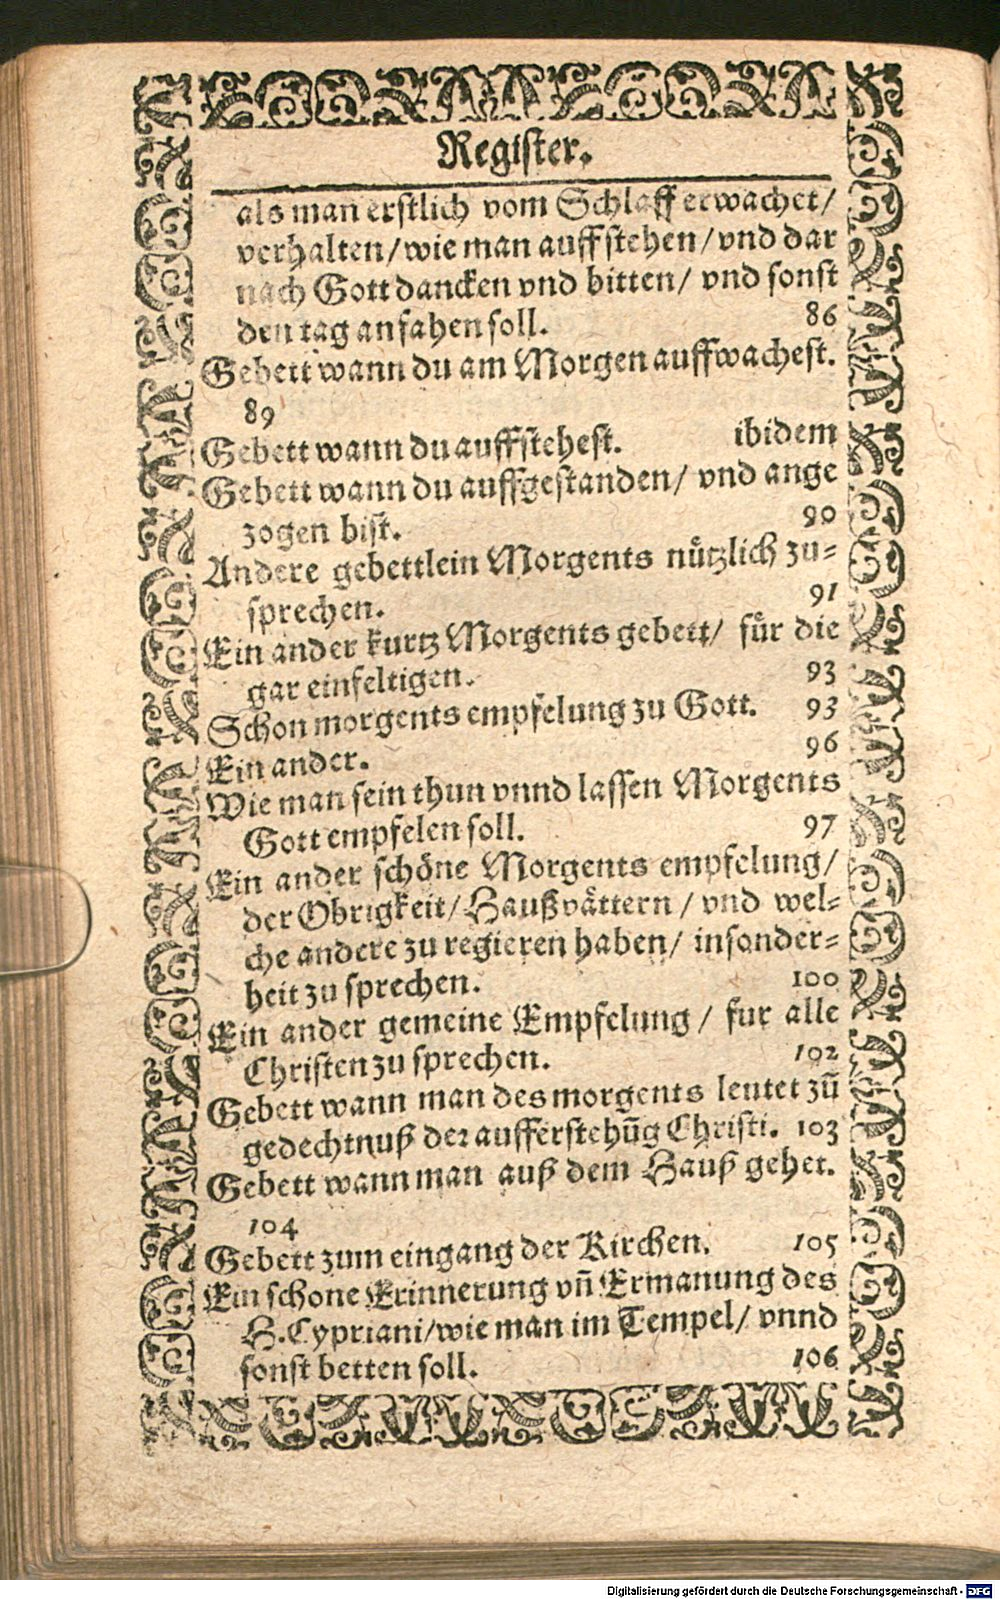 Register.
als man erstlich vom Schlaff erwachet/
verhalten/wie man auffstehen/vnd dar
nach Gott dancken vnd bitten/ vnd sonst
den tag anfahen soll. 86
Gebett wann du am Morgen auffwachest.
89
Gebett wann du auffstehest. ibidem
Gebett wann du auffgestanden/ vnd ange
zogen bist. 90
Andere gebettlein Morgents nuͤtzlich zu-
sprechen. 91
Ein ander kurtz Morgents gebett/ fuͤr die
gar einfeltigen. 93
Schon morgents empfelung zu Gott. 93
Ein ander. 96
Wie man sein thun vnnd lassen Morgents
Gott empfelen soll. 97
Ein ander schoͤne Morgents empfelung/
der Obrigkeit/Haußvaͤttern/ vnd wel-
che andere zu regieren haben/ insonder-
heit zu sprechen. 100
Ein ander gemeine Empfelung/ fur alle
Christen zu sprechen. 102
Gebett wann man des morgents leutet zū
gedechtnuß der aufferstehūg Christi. 103
Gebett wann man auß dem Hauß gehet.
104
Gebett zum eingang der Kirchen. 105
Ein schone Erinnerung vn̄ Ermanung des
H. Cypriani/wie man im Tempel/ vnnd
sonst betten soll. 106
Digitalisierung gefördert durch die Deutsche Forschungsgemeinschaft - DFG